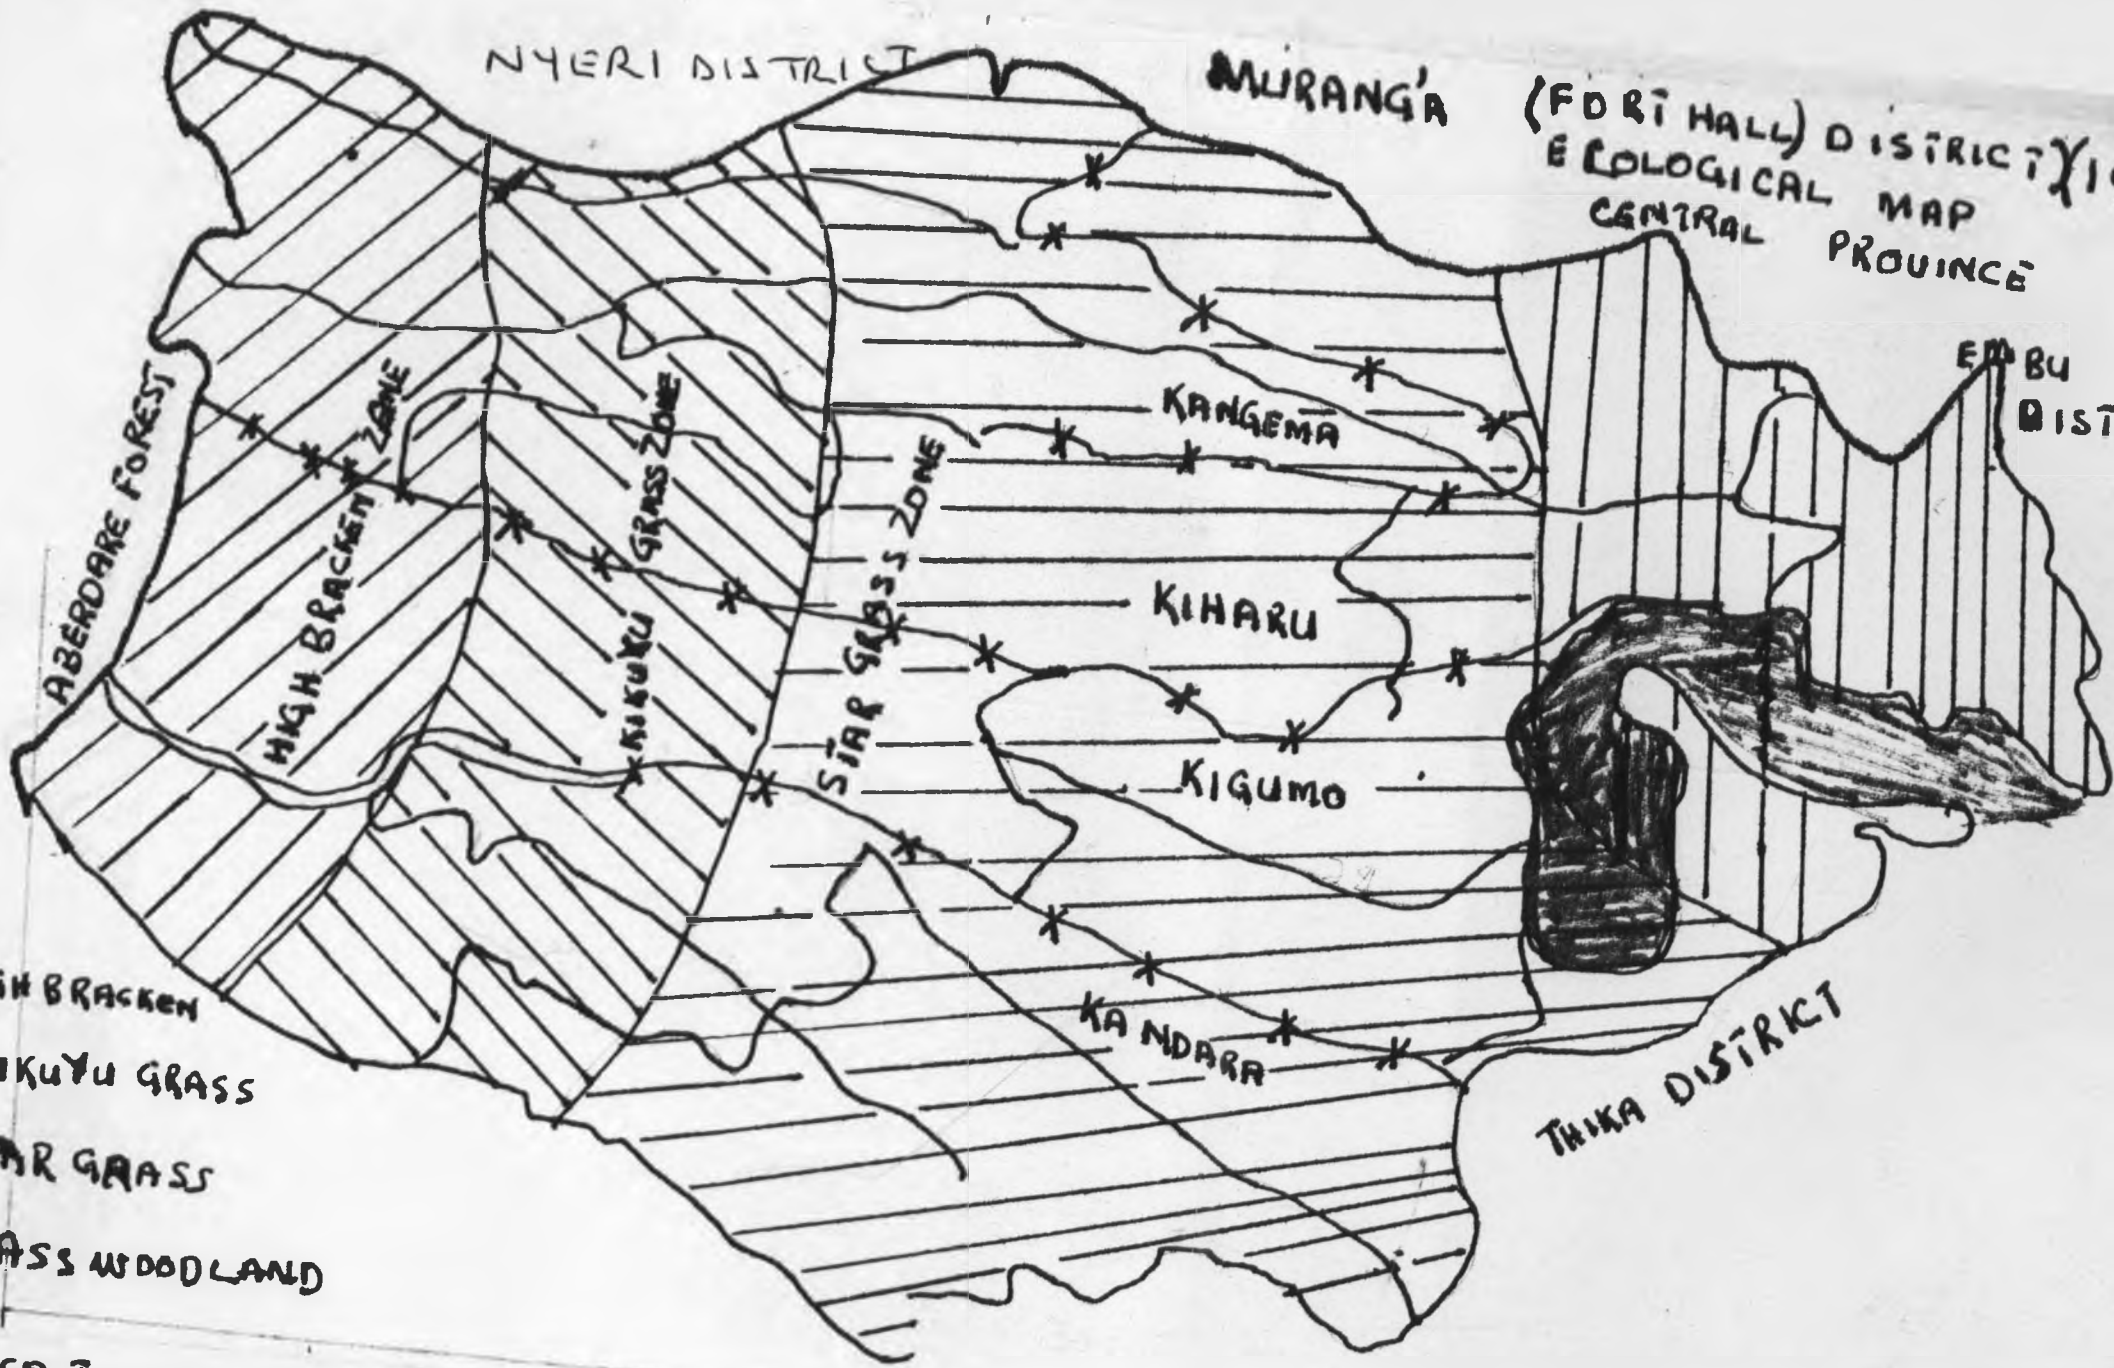 NYERI DISTRICT
MURANG'A (FORT HALL) DISTRICT)(1
ECOLOGICAL MAP
CENTRAL PROVINCE
EMBU
DIST
ABERDARE FOREST
HIGH BRACKEN ZONE
KIKUYU GRASS ZONE
STAR GRASS ZONE
KANGEMA
KIHARU
KIGUMO
KANDARA
THIKA DISTRICT
GH BRACKEN
IKUYU GRASS
AR GRASS
ASS WOODLAND